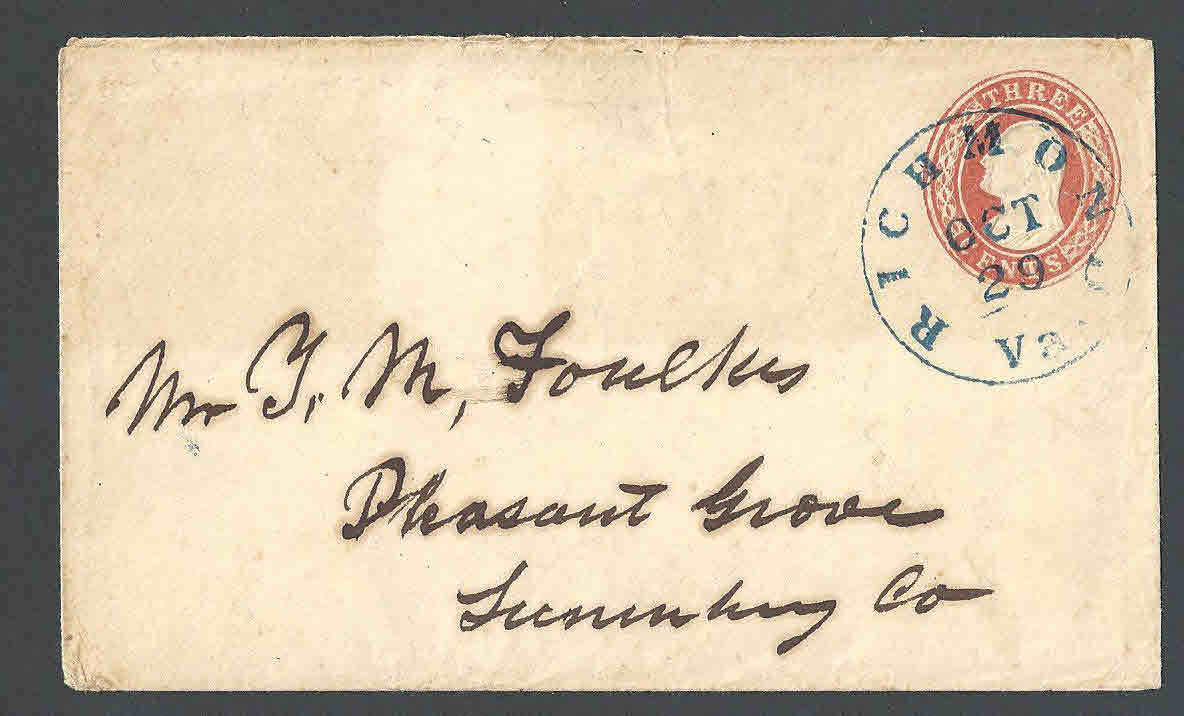 THREE
CENTS
RICHMOND
OCT
29
Va
Mr T. M, Foulkes
Pleasant Grove
Lunenburg Co